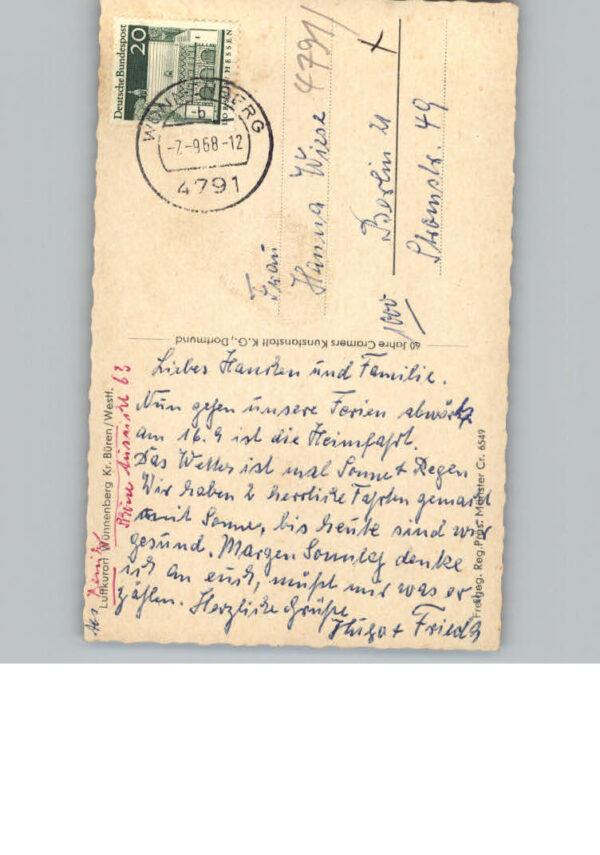 Deutsche Bundespost
20
HESSEN
WÜNNENBERG
b
-7.-9.68-12
4791
4791/
Frau
Hanna Wiese
1000
Berlin 21
Stromstr. 49
60 Jahre Cramers Kunstanstalt K.G., Dortmund
Luftkurort Wünnenberg Kr. Büren/Westf.
Freigeg. Reg. Präs. Münster Cr. 6549
Liebes Hannchen und Familie.
Nun gehen unsere Ferien abwärts
am 16.9 ist die Heimfahrt.
Das Wetter ist mal Sonne + Regen
Wir haben 2 herrliche Fahrten gemacht
mit Sonne, bis heute sind wir
gesund. Morgen Sonntag denke
ich an euch, müßt mir was er
zählen. Herzliche Grüße
Hugo + Frieda